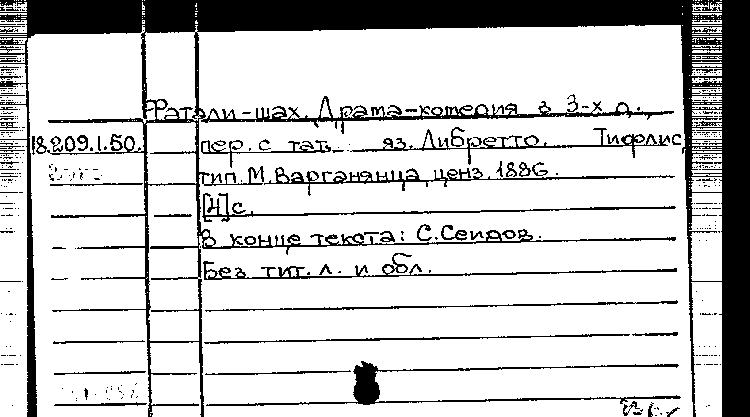 Фатали-шах. Драма-комедия в 3-х д.,
18.209.1.50. пер. с тат. яз. Либретто. Тифлис,
тип. М. Варганянца, ценз. 1886.
[4] с.
В конце текста: С. Сеидов.
Без тит. л. и обл.